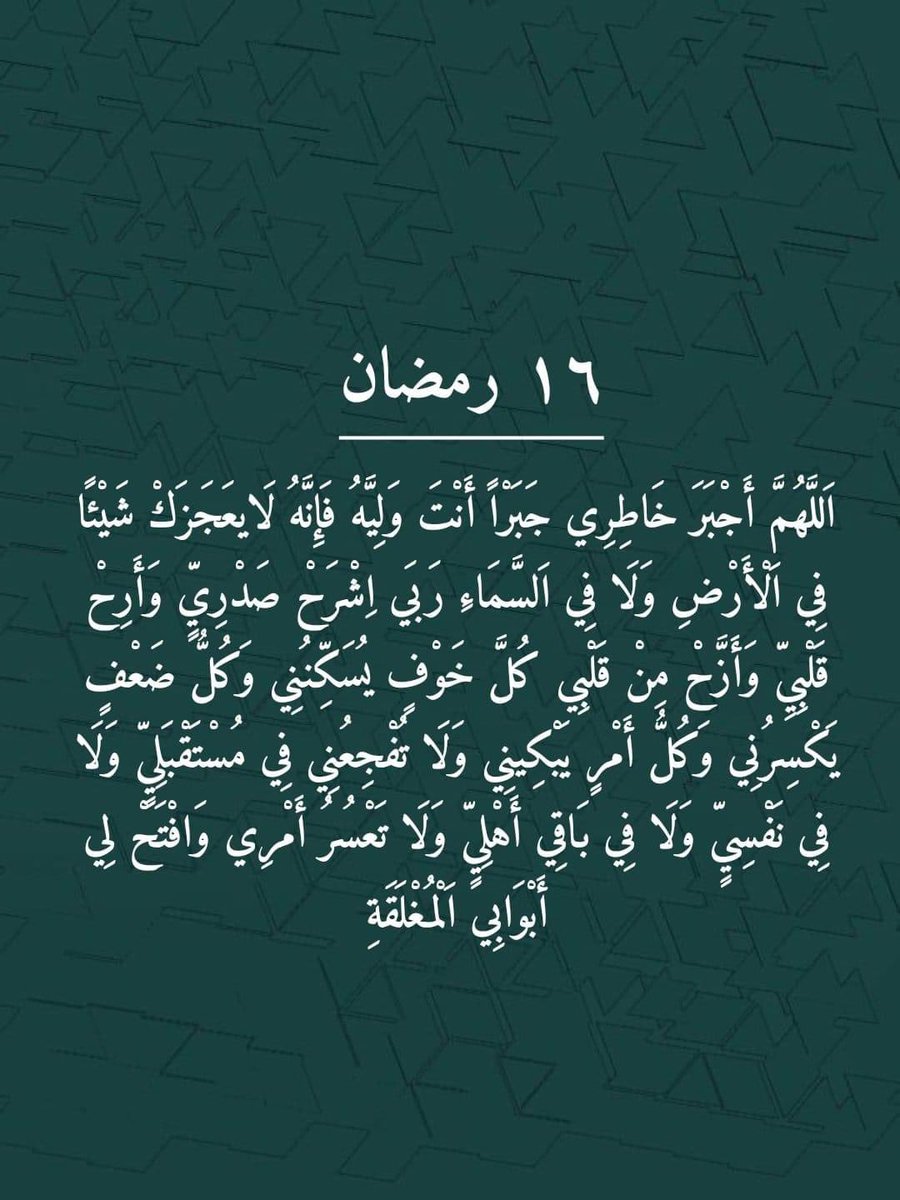 ١٦ رمضان
اَللَّهُمَّ أَجْبَرَ خَاطِرِي جَبَرْاً أَنْتَ وَلِيَّهُ فَإِنَّهُ لَايعَجَزكَْ شَيْئًا
فِي اَلْأَرْضِ وَلَا فِي اَلسَّمَاءِ رَبَي اِشْرَحْ صَدْرِيٍّ وَأَرِحْ
قَلْبِيِّ وَأَزَّحْ مِنْ قَلْبِي كُلَّ خَوْفٍ يُسَكِّنُنِي وَكُلُّ ضَعْفٍ
يَكْسِرُنِي وَكُلُّ أَمْرٍ يَبْكِينِي وَلَا تُفْجِعُنِي فِي مُسْتَقْبَلِيِّ وَلَا
فِي نَفْسِيٍّ وَلَا فِي بَاقِي أَهْلِيٍّ وَلَا تَعْسُرُ أَمْرِي وَافْتَحْ لِي
أَبْوَابِي اَلْمُغْلَقَةِ